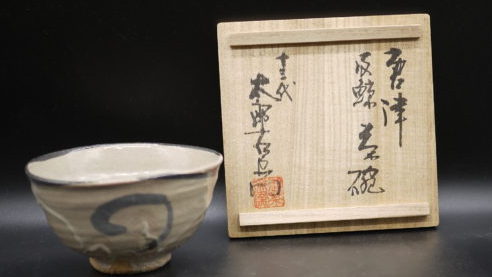 唐津
皮鯨 茶碗
十三代
太郎右衛門